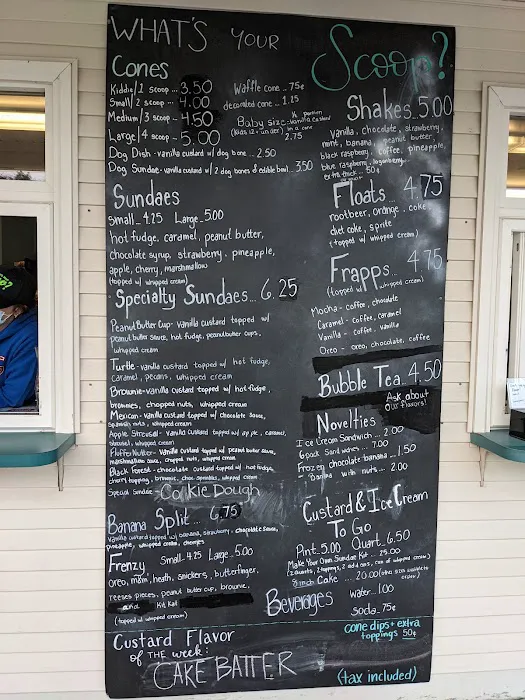 WHAT'S YOUR
Scoop?
Cones
Kiddie/1 scoop... 3.50
Small/2 scoop... 4.00
Medium/3 scoop... 4.50
Large/4 scoop... 5.00
Waffle cone .. 75¢
decorated cone .. 1.25
Baby Size - vanilla custard
(kids 12 + under) in a cone
2.75
Dog Dish - vanilla custard w/ dog bone .. 2.50
Dog Sundae - vanilla custard w/ 2 dog bones & edible bowl .. 3.50
Sundaes
Small.. 4.25 Large.. 5.00
hot fudge, caramel, peanut butter,
chocolate syrup, strawberry, pineapple,
apple, cherry, marshmallow
(topped w/ whipped cream)
Specialty Sundaes... 6.25
Peanut Butter Cup - vanilla custard topped w/
peanut butter sauce, hot fudge, peanut butter cups,
whipped cream
Turtle - vanilla custard topped w/ hot fudge,
caramel, pecans, whipped cream
Brownie - vanilla custard topped w/ hot fudge,
brownies, chopped nuts, whipped cream
Mexican - vanilla custard topped w/ chocolate sauce,
Spanish nuts, whipped cream
Apple Streusel - vanilla custard topped w/ apple, caramel,
streusel, whipped cream
Fluffer Nutter - vanilla custard topped w/ peanut butter sauce,
marshmallow sauce, chopped nuts, whipped cream
Black Forest - chocolate custard topped w/ hot fudge,
cherry topping, brownie, choc sprinkles, whipped cream
Special Sundae - Cookie Dough
Banana Split... 6.75
vanilla custard topped w/ banana, strawberry, chocolate sauce,
pineapple, whipped cream, cherries
Frenzy Small.. 4.25 Large.. 5.00
oreo, m&m, heath, snickers, butterfinger,
reeses pieces, peanut butter cup, brownie,
Kit Kat
(topped w/ whipped cream)
Custard Flavor
of THE week:
CAKE BATTER
Shakes.. 5.00
Vanilla, chocolate, strawberry,
mint, banana, peanut butter,
black raspberry, coffee, pineapple,
blue raspberry, loganberry..
extra thick.. 50¢
Floats 4.75
rootbeer, orange, coke
diet coke, sprite
(topped w/ whipped cream)
Frapps.. 4.75
(topped w/ whipped cream)
Mocha - coffee, chocolate
Caramel - coffee, caramel
Vanilla - coffee, vanilla
Oreo - oreo, chocolate, coffee
Bubble Tea. 4.50
Ask about
our flavors!
Novelties
Ice Cream Sandwich ... 2.00
6 pack Sandwiches ... 7.00
Frozen chocolate banana... 1.50
" banana with nuts... 2.00
Custard & Ice Cream
To Go
Pint.. 5.00 Quart.. 6.50
Make Your Own Sundae Kit... 25.00
(2 quarts, 2 toppings, 2 add ons, can of whipped cream)
8 inch Cake ... 20.00 (other sizes available to
order)
Beverages
water.. 1.00
soda.. 75¢
cone dips + extra
toppings 50¢
(tax included)